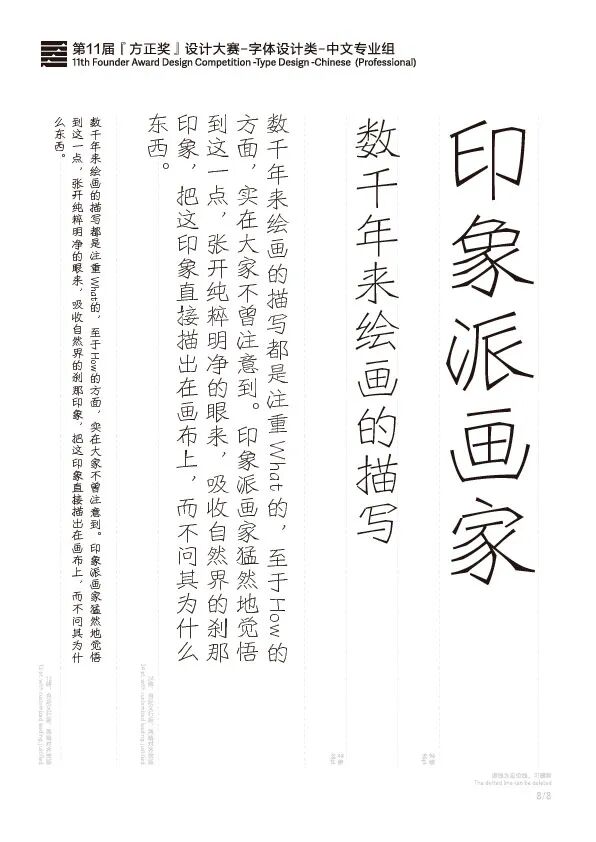 第11届『方正奖』设计大赛-字体设计类-中文专业组
11th Founder Award Design Competition -Type Design -Chinese (Professional)
印象派画家
数千年来绘画的描写
数千年来绘画的描写都是注重What的，至于How的
方面，实在大家不曾注意到。印象派画家猛然地觉悟
到这一点，张开纯粹明净的眼来，吸收自然界的刹那
印象，把这印象直接描出在画布上，而不问其为什么
东西。
数千年来绘画的描写都是注重What的，至于How的方面，实在大家不曾注意到。印象派画家猛然地觉悟
到这一点，张开纯粹明净的眼来，吸收自然界的刹那印象，把这印象直接描出在画布上，而不问其为什
么东西。
The dotted line can be deleted
8/8